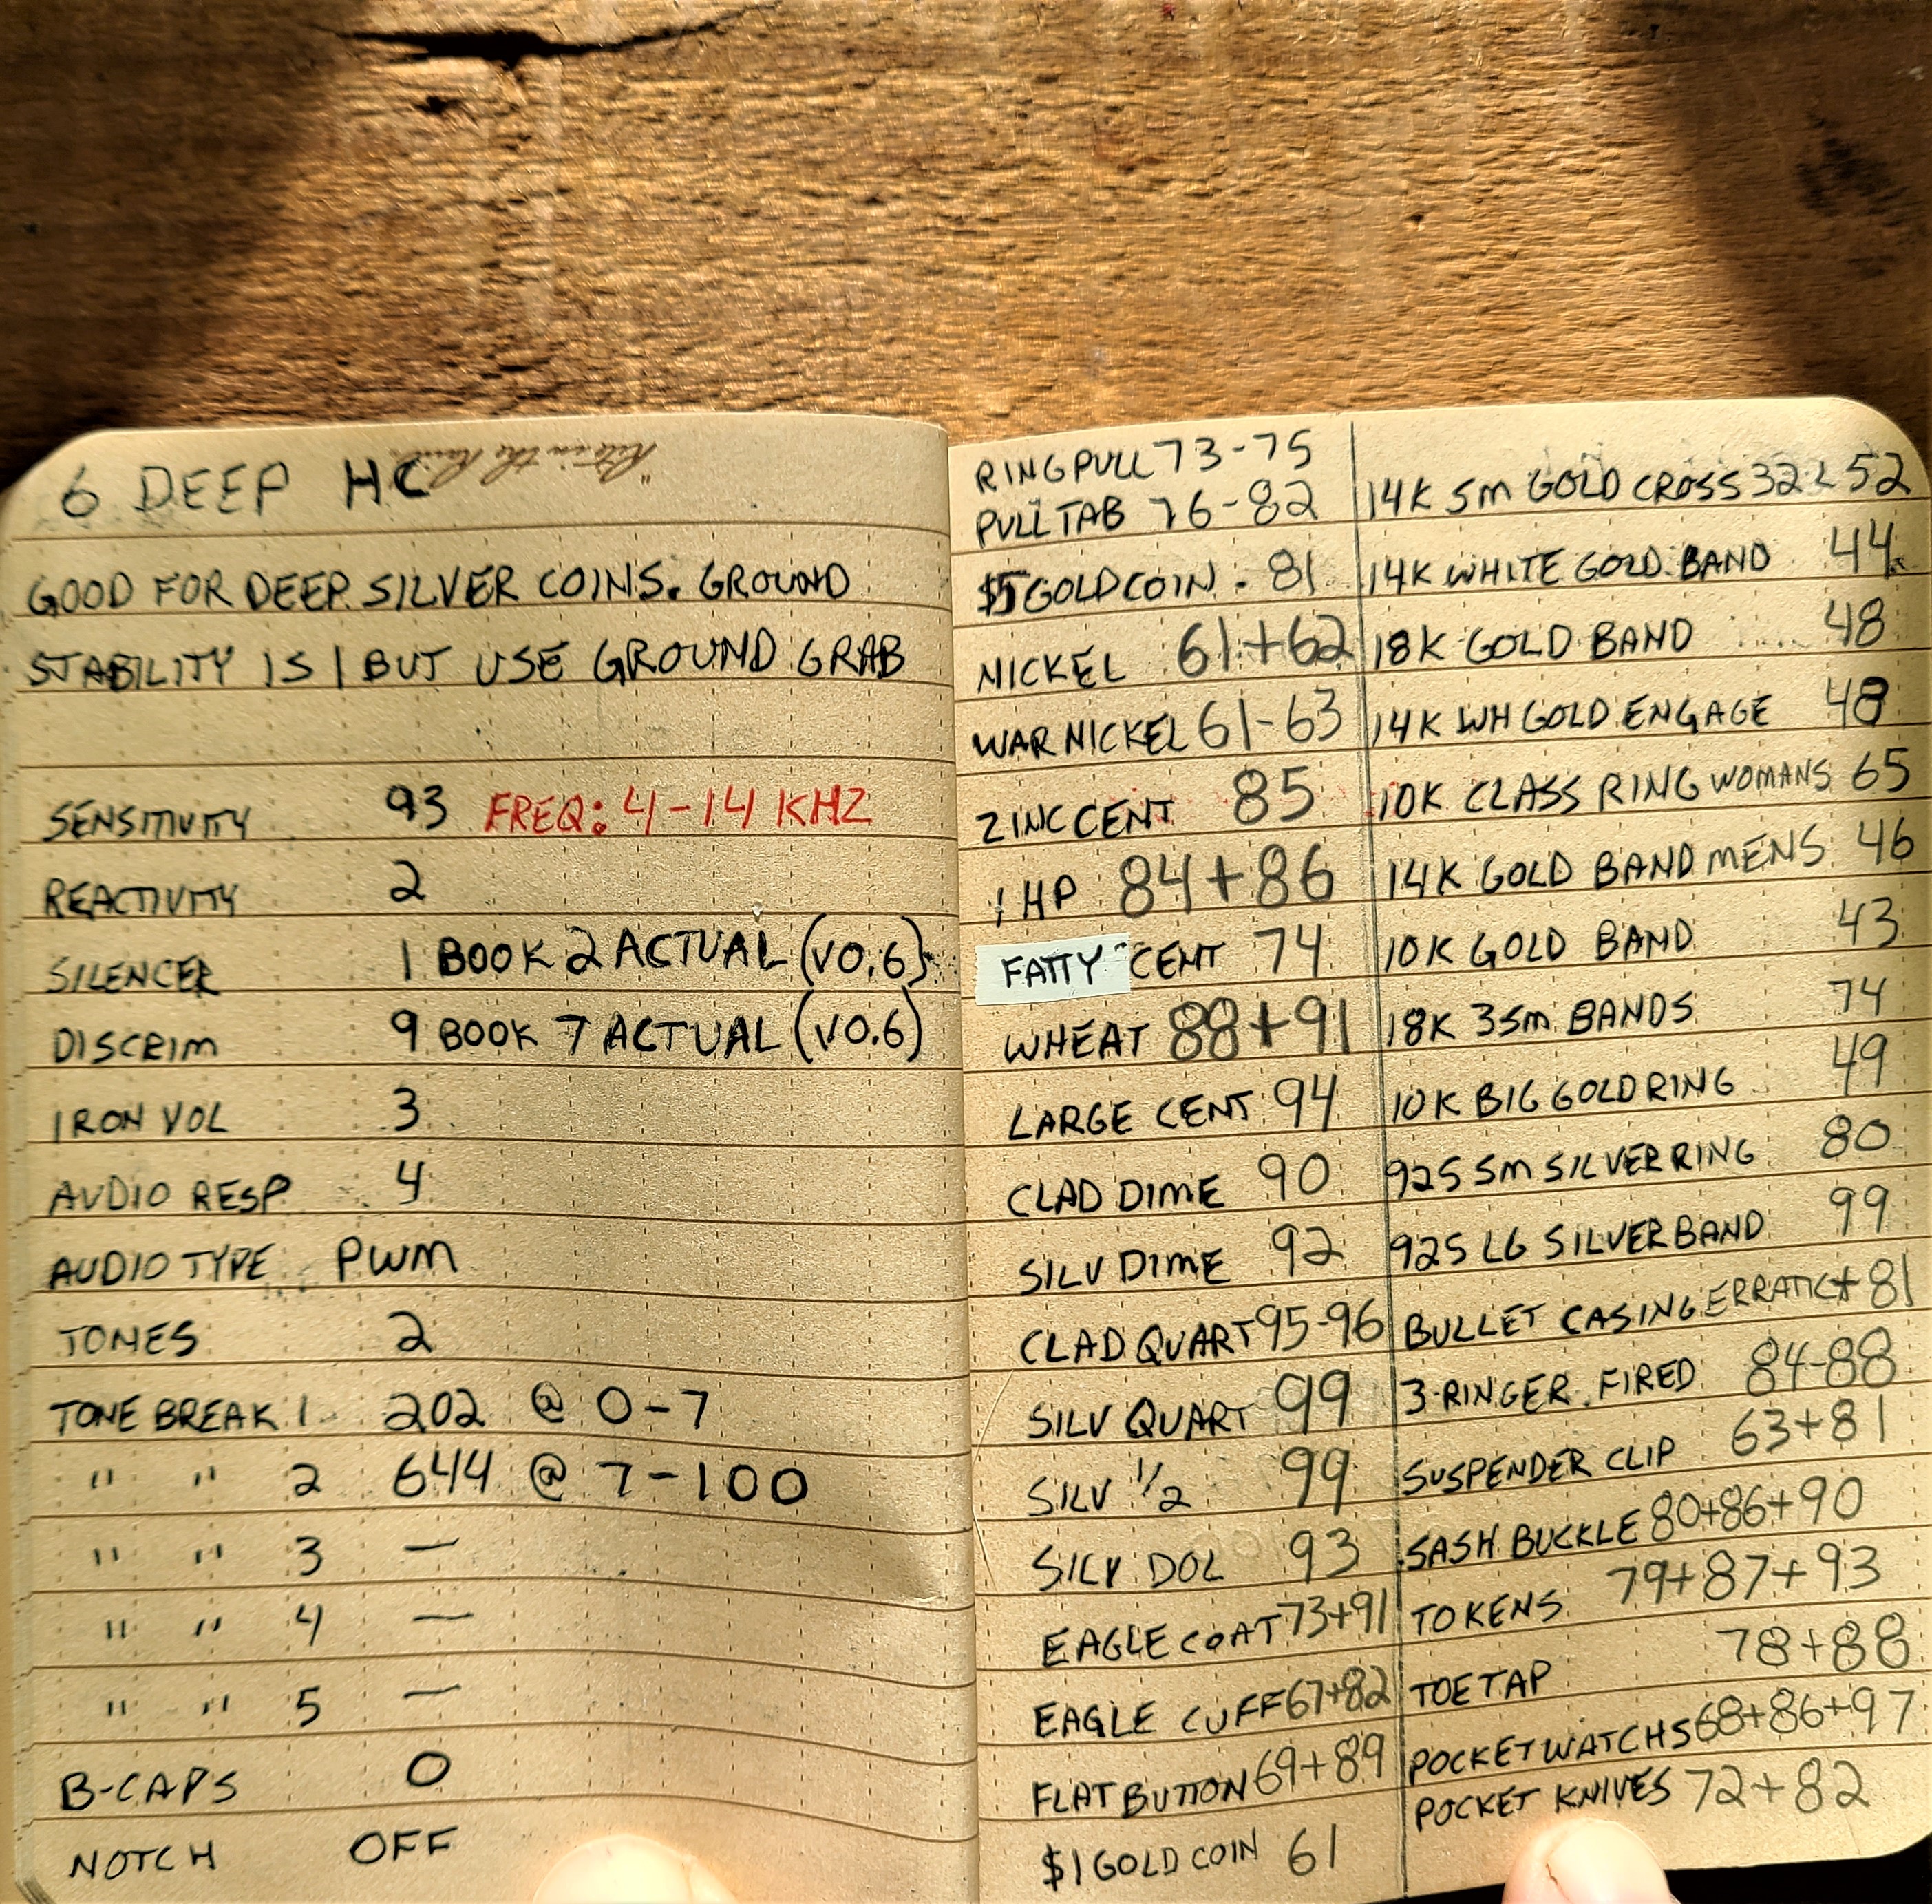 6 DEEP HC
"Rite in the Rain"
GOOD FOR DEEP SILVER COINS. GROUND
STABILITY IS 1 BUT USE GROUND GRAB
SENSITIVITY 93 FREQ: 4-14 KHZ
REACTIVITY 2
SILENCER 1 BOOK 2 ACTUAL (V0.6)
DISCRIM 9 BOOK 7 ACTUAL (V0.6)
IRON VOL 3
AUDIO RESP 4
AUDIO TYPE PWM
TONES 2
TONE BREAK 1 202 @ 0-7
" " 2 644 @ 7-100
" " 3 —
" " 4 —
" " 5 —
B-CAPS 0
NOTCH OFF
RING PULL 73-75
PULL TAB 76-82
$5 GOLD COIN. 81
NICKEL 61+62
WAR NICKEL 61-63
ZINC CENT 85
1 HP 84+86
FATTY CENT 74
WHEAT 88+91
LARGE CENT 94
CLAD DIME 90
SILV DIME 92
CLAD QUART 95-96
SILV QUART 99
SILV 1/2 99
SILV DOL 93
EAGLE COAT 73+91
EAGLE CUFF 67+82
FLAT BUTTON 69+89
$1 GOLD COIN 61
14K SM GOLD CROSS 32 52
14K WHITE GOLD BAND 44
18K GOLD BAND 48
14K WH GOLD ENGAGE 48
10K CLASS RING WOMANS 65
14K GOLD BAND MENS 46
10K GOLD BAND 43
18K 3 SM BANDS 74
10K BIG GOLD RING 49
925 SM SILVER RING 80
925 LG SILVER BAND 99
BULLET CASING ERRATIC + 81
3-RINGER FIRED 84-88
SUSPENDER CLIP 63+81
SASH BUCKLE 80+86+90
TOKENS 79+87+93
TOE TAP 78+88
POCKET WATCHS 68+86+97
POCKET KNIVES 72+82